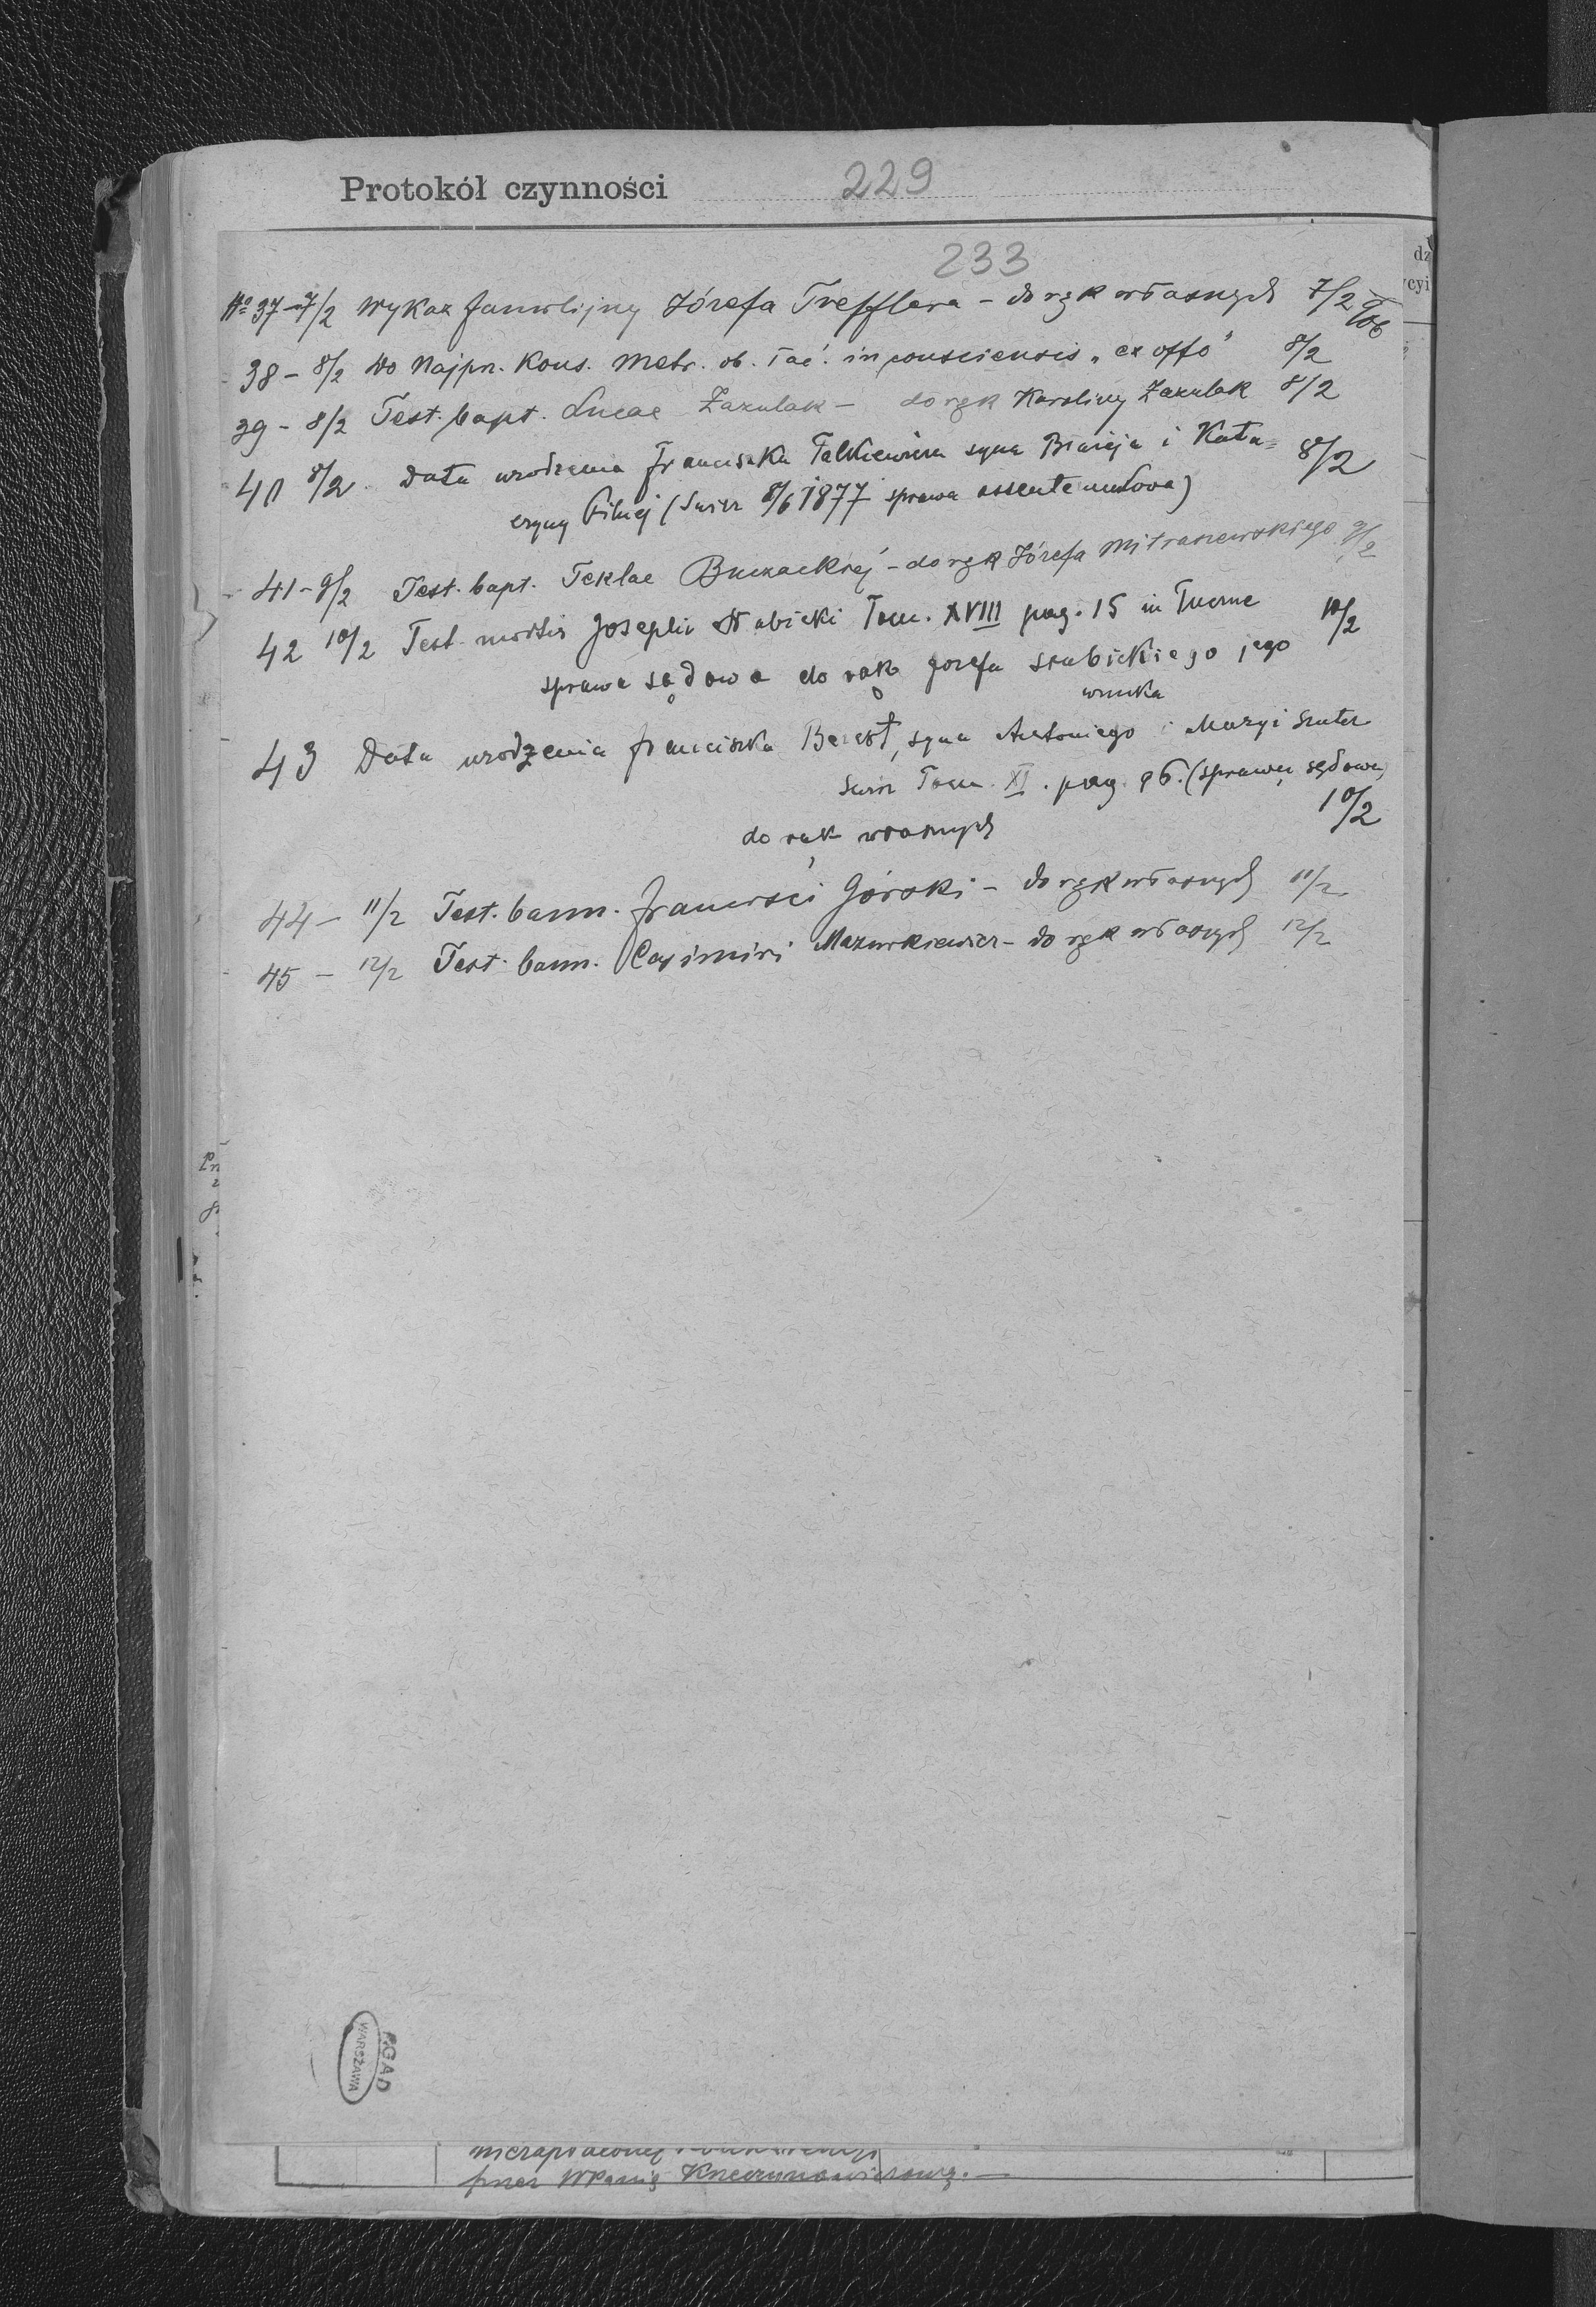 Protokół czynności 229
233
No 37 - 7/2 Wykaz familijny Józefa Trefflera - do rąk własnych 7/2 906
38 - 8/2 Do Najprz. Kons. Metr. ob. łać. in consciensis „ex offo" 8/2
39 - 8/2 Test. bapt. Lucae Zazulak - do rąk Karoliny Zazulak 8/2
40 8/2 Data urodzenia Franciszka Falkiewicza syna Błażeja i Kata=
erzyny (Swirz 8/6 1877 sprawa assentenudowa) 8/2
41 - 9/2 Test. bapt. Teklae Buczackiej - do rąk Józefa Mitraszewskiego 9/2
42 10/2 Test mortis Josephi Skubicki Tom. XVIII pag. 15 in 10/2
sprawa sądowa do rąk Jozefa Skubickiego jego
wnuka
43 Data urodzenia Franciszka Berest, syna Antoniego i Maryi
Swirz Tom. XI. pag. 96. (sprawa sądowa)
do rąk własnych 10/2
44 - 11/2 Test. bann. Francisci Górski - do rąk własnych 11/2
45 - 12/2 Test. bann. Casimiri Mazurkiewicz - do rąk własnych 12/2
AGAD
WARSZAWA
przez WPanią